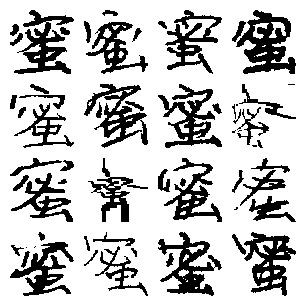 蜜蜜蜜蜜
蜜蜜蜜蜜
蜜蜜蜜
蜜蜜蜜蜜